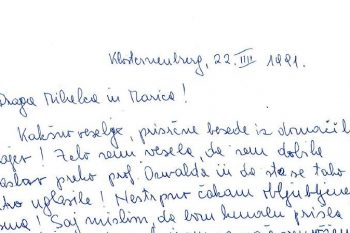 Klosterneuburg, 22. III 1991.
Draga Mihelca in Marica!
Kakšno veselje, prisrčne besede iz domačih
krajev! Zelo sem vesela, da sem dobila
naslov preko prof. Oswalda in da sta se tako
oglasile! Nestrpno čakam obljubljena
Saj mislim, da bom kmalu prišla